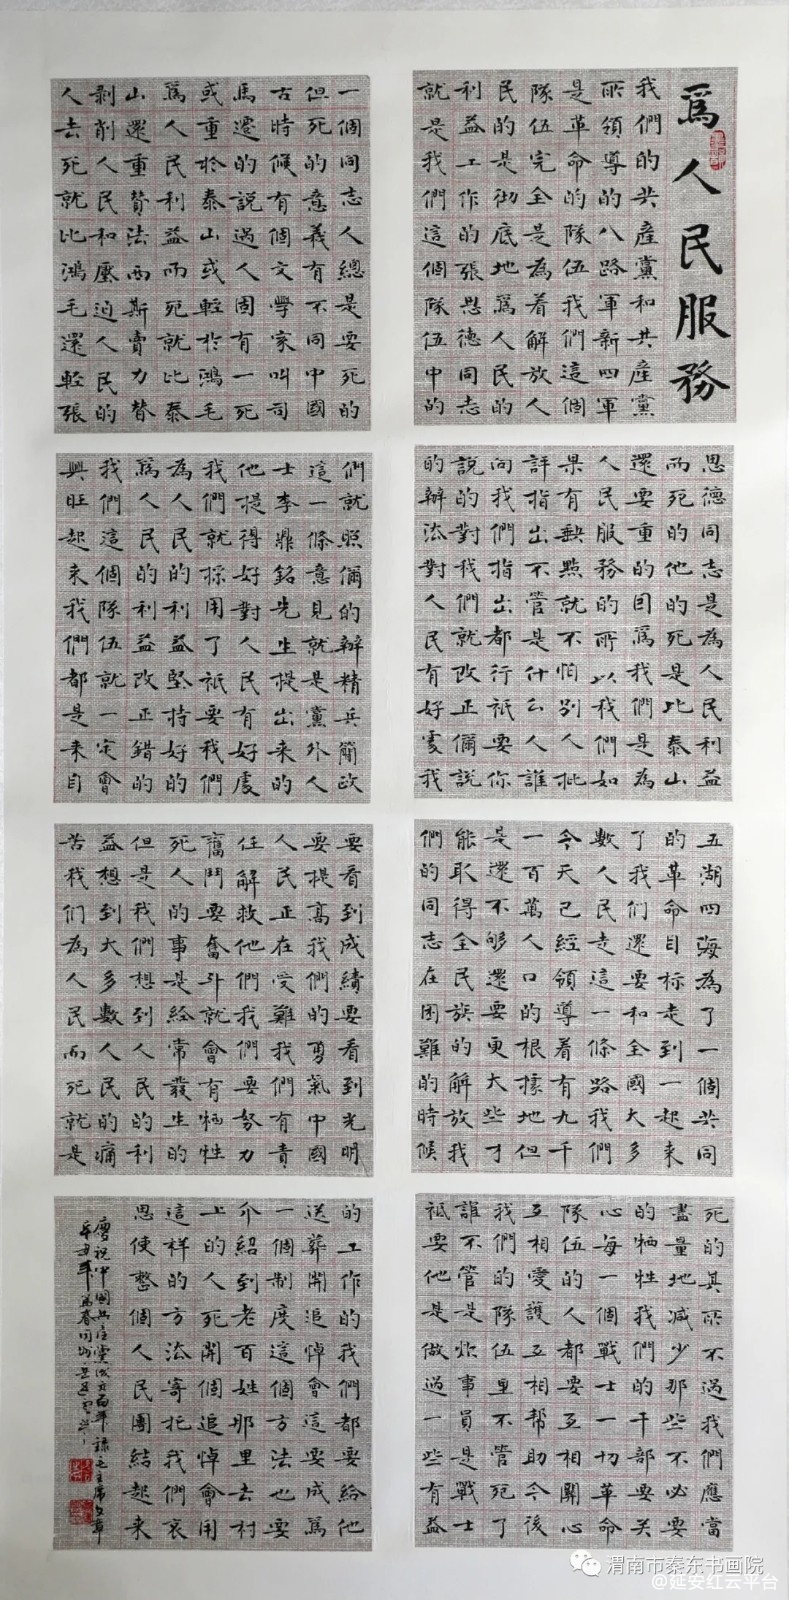 爲人民服務
我們的共産黨和共産黨
所領導的八路軍新四軍
是革命的隊伍我們這個
隊伍完全是為着解放人
民的是彻底地爲人民的
利益工作的張思德同志
就是我們這個隊伍中的
一個同志人總是要死的
但死的意義有不同中國
古時候有個文學家叫司
馬遷的說過人固有一死
或重於泰山或輕於鴻毛
爲人民利益而死就比泰
山還重替法西斯賣力替
剥削人民和壓迫人民的
人去死就比鴻毛還輕張
思德同志是為人民利益
而死的他的死是比泰山
還要重的因爲我們是為
人民服務的所以我們如
果有缺點就不怕别人批
評指出不管是什么人誰
向我們指出都行祇要你
說的對我們就改正儞說
的辦法對人民有好處我
們就照儞的辦精兵簡政
這一條意見就是黨外人
士李鼎銘先生提出来的
他提得好對人民有好處
我們就採用了祇要我們
為人民的利益堅持好的
爲人民的利益改正錯的
我們這個隊伍就一定會
興旺起来我們都是来自
五湖四海為了一個共同
的革命目标走到一起来
了我们還要和全國大多
數人民走這一條路我們
今天已經領導着有九千
一百萬人口的根據地但
是還不够還要更大些才
能取得全民族的解放我
們的同志在困難的時候
要看到成績要看到光明
要提高我們的勇氣中國
人民正在受難我們有責
任解救他們我們要努力
奮鬥要奮斗就會有牺牲
死人的事是經常發生的
但是我們想到人民的利
益想到大多數人民的痛
苦我们為人民而死就是
死的其所不過我們應當
盡量地减少那些不必要
的牺牲我們的干部要关
心每一個戰士一切革命
隊伍的人都要互相關心
互相愛護互相帮助今後
我們的隊伍里不管死了
誰不管是炊事員是戰士
祗要他是做過一些有益
的工作的我們都要給他
送葬開追悼會這要成爲
一個制度這個方法也要
介紹到老百姓那里去村
上的人死開個追悼會用
這样的方法寄托我們哀
思使整個人民團結起来
慶祝中國共産黨成立百年録毛主席文章
辛丑年
渭南市秦东书画院
@延安红云平台